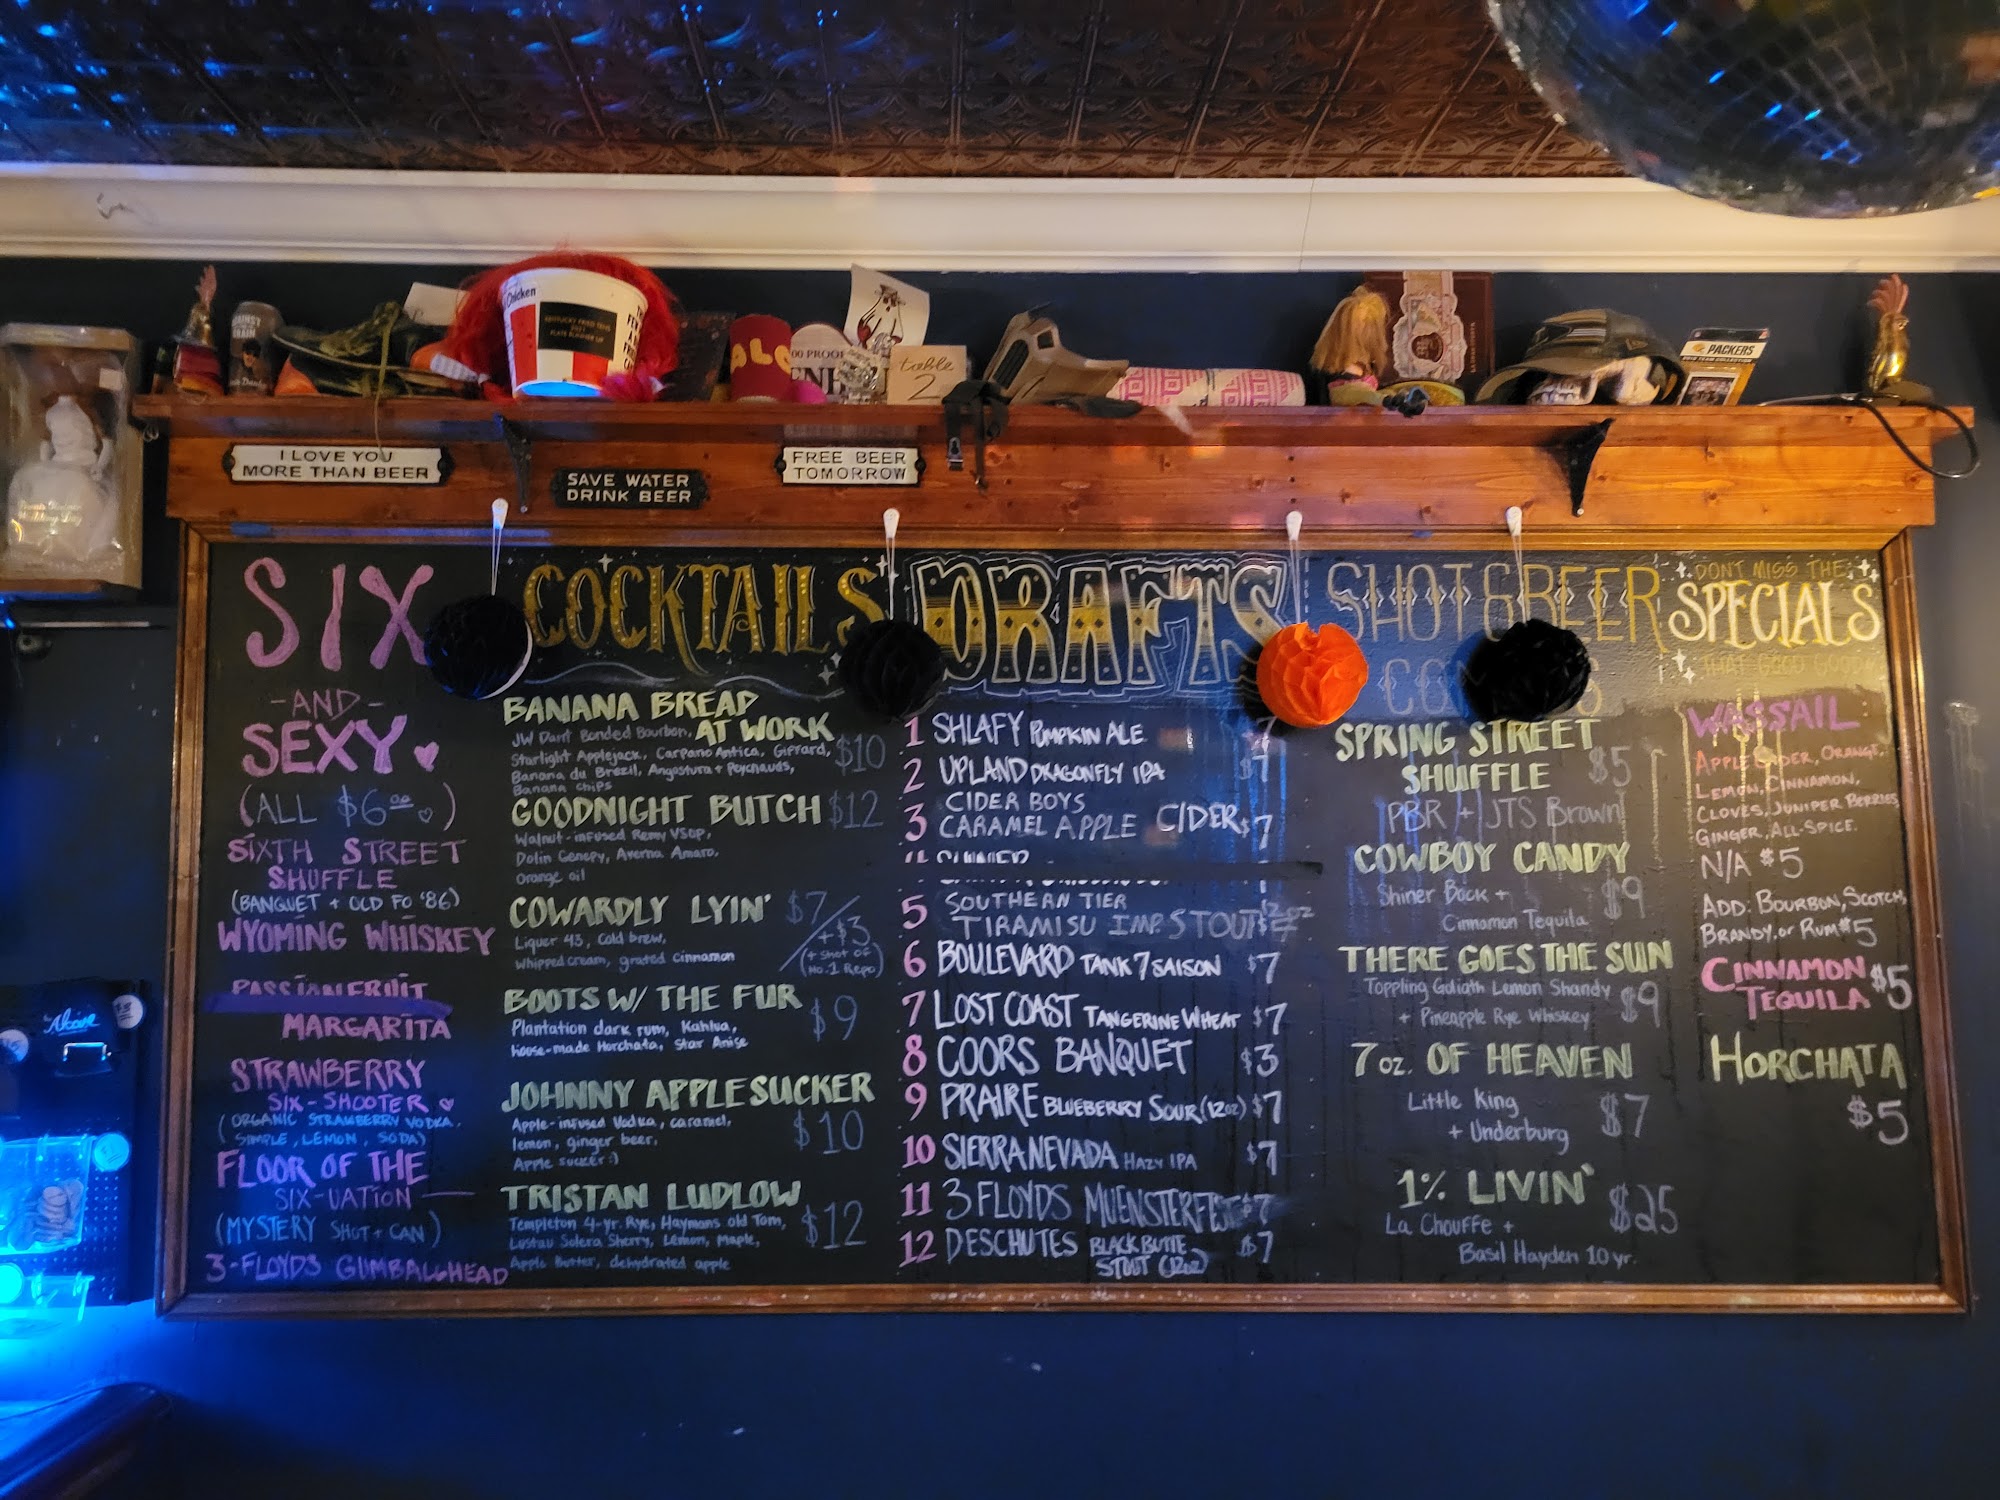 Chicken
KENTUCKY FRIED
table
2
PACKERS
I LOVE YOU
MORE THAN BEER
SAVE WATER
DRINK BEER
FREE BEER
TOMORROW
Above
SIX
-AND-
SEXY
(ALL $6.00)
SIXTH STREET
SHUFFLE
(BANQUET + OLD FO '86)
WYOMING WHISKEY
PASSIONFRUIT
MARGARITA
STRAWBERRY
SIX-SHOOTER
(ORGANIC STRAWBERRY VODKA,
SIMPLE, LEMON, SODA)
FLOOR OF THE
SIX-UATION
(MYSTERY SHOT + CAN)
3-FLOYDS GUMBALLHEAD
COCKTAILS
BANANA BREAD
AT WORK
JW Dant Bonded Bourbon,
Starlight Applejack, Carpano Antica, Giffard, $10
Banana du Brazil, Angostura + Peychauds,
Banana chips
GOODNIGHT BUTCH $12
Walnut-infused Remy VSOP,
Dolin Genepy, Averna Amaro,
Orange oil
COWARDLY LYIN' $7/+$3
Liquer 43, Cold brew,
whipped cream, grated cinnamon
(+ shot of
No.1 Repo)
BOOTS W/ THE FUR $9
Plantation dark rum, Kahlua,
house-made Horchata, Star Anise
JOHNNY APPLESUCKER
Apple-infused Vodka, caramel, $10
lemon, ginger beer,
Apple sucker :)
TRISTAN LUDLOW $12
Templeton 4-yr. Rye, Haymans old Tom,
Lustau Solera Sherry, Lemon, Maple,
Apple Butter, dehydrated apple
DRAFTS
1 SHLAFY PUMPKIN ALE 7
2 UPLAND DRAGONFLY IPA $7
3 CIDER BOYS
CARAMEL APPLE CIDER $7
5 SOUTHERN TIER
TIRAMISU IMP. STOUT 12oz
6 BOULEVARD TANK 7 SAISON $7
7 LOST COAST TANGERINE WHEAT $7
8 COORS BANQUET $3
9 PRAIRE BLUEBERRY SOUR (12oz) $7
10 SIERRA NEVADA HAZY IPA $7
11 3 FLOYDS MUENSTERFEST $7
12 DESCHUTES BLACK BUTTE $7
STOUT (12oz)
SHOT & BEER
SPRING STREET
SHUFFLE $5
PBR + JTS Brown
COWBOY CANDY
Shiner Bock + $9
Cinnamon Tequila
THERE GOES THE SUN
Toppling Goliath Lemon Shandy $9
+ Pineapple Rye Whiskey
7 oz. OF HEAVEN
Little King $7
+ Underburg
1% LIVIN' $25
La Chouffe +
Basil Hayden 10 yr.
DONT MISS THE
SPECIALS
THAT GOOD GOOD
WASSAIL
APPLE CIDER, ORANGE,
LEMON, CINNAMON,
CLOVES, JUNIPER BERRIES,
GINGER, ALL-SPICE.
N/A $5
ADD: BOURBON, SCOTCH,
BRANDY, OR RUM $5
CINNAMON
TEQUILA $5
HORCHATA
$5